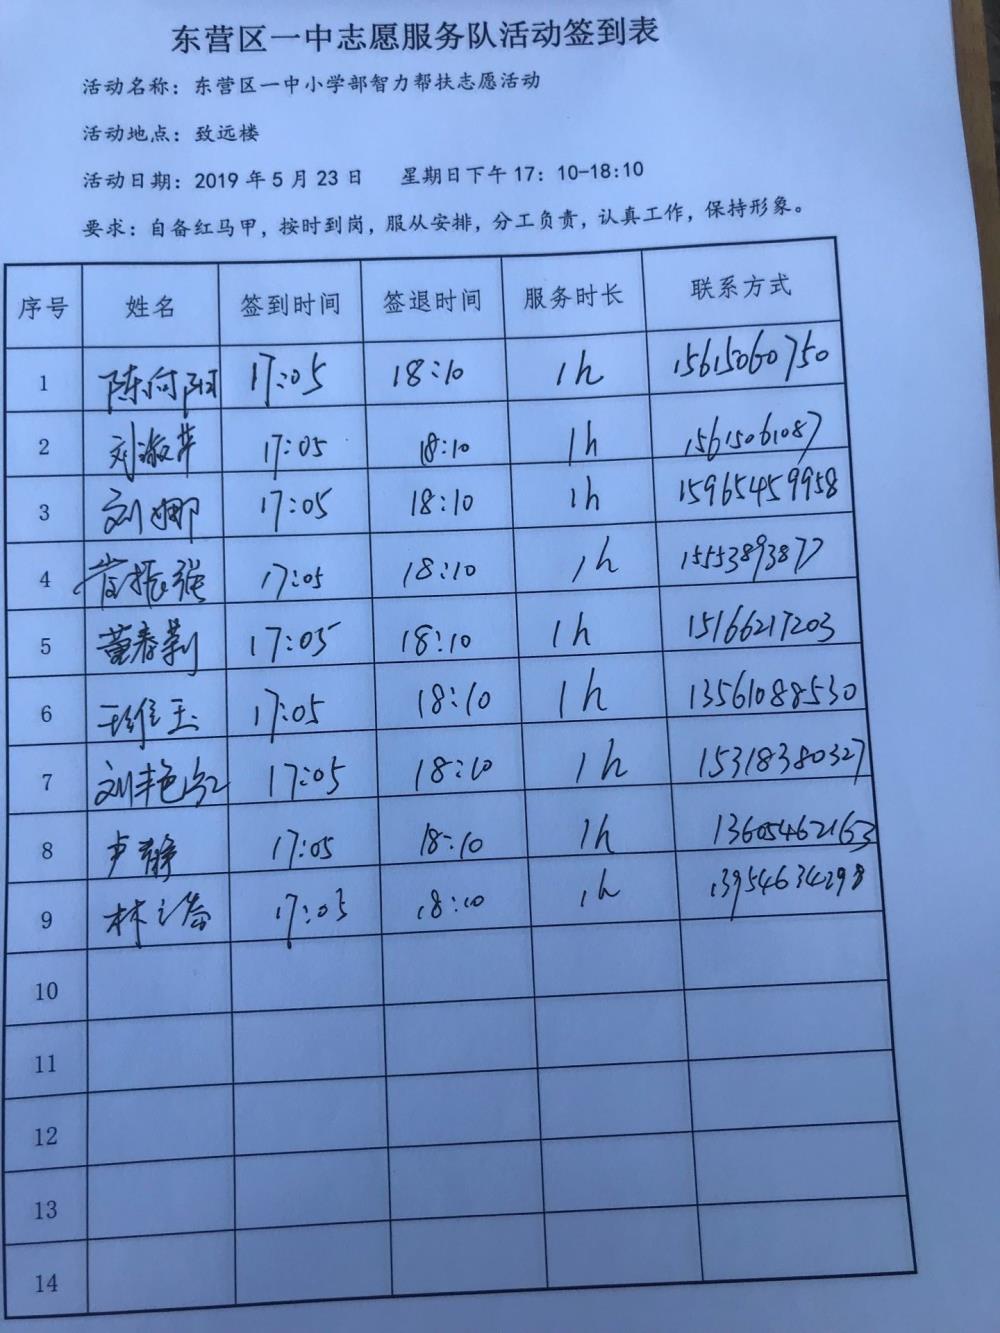 东营区一中志愿服务队活动签到表
活动名称：东营区一中小学部智力帮扶志愿活动
活动地点：致远楼
活动日期：2019 年 5 月 23 日 星期日下午 17：10-18:10
要求：自备红马甲，按时到岗，服从安排，分工负责，认真工作，保持形象。
序号 姓名 签到时间 签退时间 服务时长 联系方式
1 陈向阳 17:05 18:10 1h 15615060750
2 刘淑萍 17:05 18:10 1h 15615061087
3 刘娜 17:05 18:10 1h 15965459958
4 17:05 18:10 1h
5 董春莉 17:05 18:10 1h 15166217203
6 王维玉 17:05 18:10 1h 13561088530
7 刘艳红 17:05 18:10 1h 15318380327
8 卢静 17:05 18:10 1h 13605462163
9 17:05 18:10 1h 13954634298
10
11
12
13
14